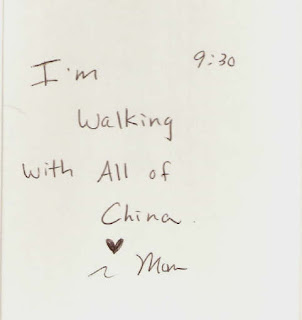 9:30
I'm
Walking
with All of
China.
♥
~ Mom